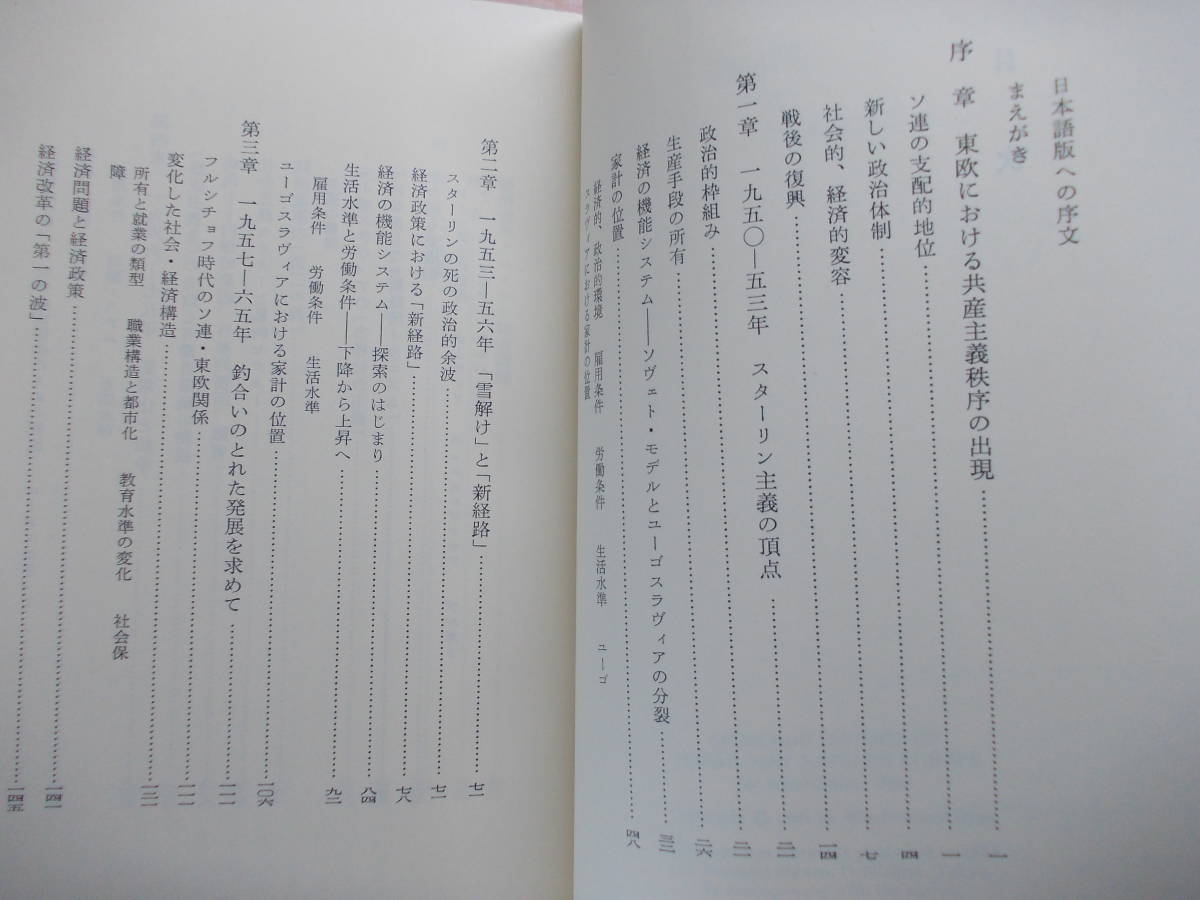 日本語版への序文
まえがき
序章 東欧における共産主義秩序の出現……一
ソ連の支配的地位……一
新しい政治体制……四
社会的、経済的変容……七
戦後の復興……一四
第一章 一九五〇―五三年 スターリン主義の頂点……二一
政治的枠組み……二一
生産手段の所有……二六
経済の機能システム――ソヴェト・モデルとユーゴスラヴィアの分裂……三二
家計の位置……四八
経済的、政治的環境 雇用条件 労働条件 生活水準 ユーゴ
スラヴィアにおける家計の位置
第二章 一九五三―五六年 「雪解け」と「新経路」……七一
スターリンの死の政治的余波……七一
経済政策における「新経路」……七八
経済の機能システム――探索のはじまり……八四
生活水準と労働条件――下降から上昇へ……九二
雇用条件 労働条件 生活水準
ユーゴスラヴィアにおける家計の位置……一〇六
第三章 一九五七―六五年 釣合いのとれた発展を求めて……一一一
フルシチョフ時代のソ連・東欧関係……一一一
変化した社会・経済構造……一二一
所有と就業の類型 職業構造と都市化 教育水準の変化 社会保
障
経済問題と経済政策……一四一
経済改革の「第一の波」……一四五